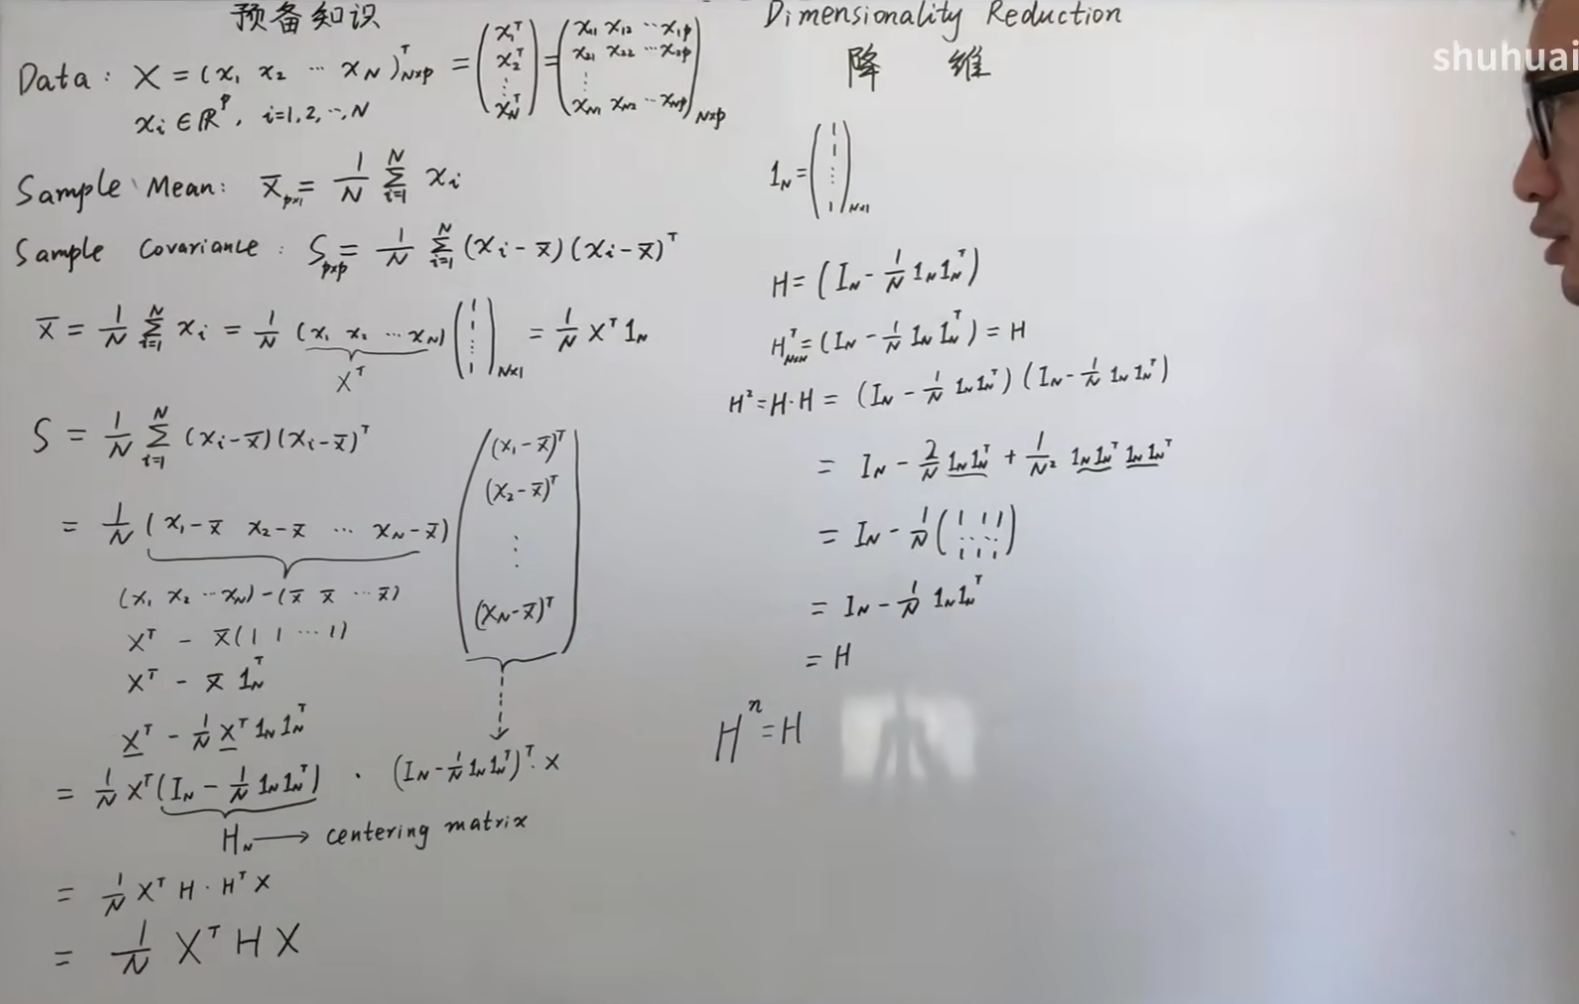 预备知识
Data: X = (x₁ x₂ ⋯ x_N)ᵀ_{N×p} = (x₁ᵀ x₂ᵀ ⋮ x_Nᵀ) = (x₁₁ x₁₂ ⋯ x₁ₚ x₂₁ x₂₂ ⋯ x₂ₚ ⋮ x_{N1} x_{N2} ⋯ x_{Np})_{N×p}
xᵢ ∈ ℝᵖ, i=1,2,⋯,N
Sample Mean: x̄_{p×1} = 1/N ∑_{i=1}^{N} xᵢ
Sample Covariance: S_{p×p} = 1/N ∑_{i=1}^{N} (xᵢ - x̄)(xᵢ - x̄)ᵀ
x̄ = 1/N ∑_{i=1}^{N} xᵢ = 1/N (x₁ x₂ ⋯ x_N) (1 1 ⋮ 1)_{N×1} = 1/N Xᵀ 1_N
Xᵀ
S = 1/N ∑_{i=1}^{N} (xᵢ - x̄)(xᵢ - x̄)ᵀ
= 1/N (x₁ - x̄ x₂ - x̄ ⋯ x_N - x̄) ((x₁ - x̄)ᵀ (x₂ - x̄)ᵀ ⋮ (x_N - x̄)ᵀ)
(x₁ x₂ ⋯ x_N) - (x̄ x̄ ⋯ x̄)
Xᵀ - x̄ (1 1 ⋯ 1)
Xᵀ - x̄ 1_Nᵀ
Xᵀ - 1/N Xᵀ 1_N 1_Nᵀ
= 1/N Xᵀ (I_N - 1/N 1_N 1_Nᵀ) · (I_N - 1/N 1_N 1_Nᵀ)ᵀ · X
H_N ⟶ centering matrix
= 1/N Xᵀ H · Hᵀ X
= 1/N Xᵀ H X
Dimensionality Reduction
降 维
1_N = (1 1 ⋮ 1)_{N×1}
H = (I_N - 1/N 1_N 1_Nᵀ)
Hᵀ_{N×N} = (I_N - 1/N 1_N 1_Nᵀ) = H
H² = H·H = (I_N - 1/N 1_N 1_Nᵀ)(I_N - 1/N 1_N 1_Nᵀ)
= I_N - 2/N 1_N 1_Nᵀ + 1/N² 1_N 1_Nᵀ 1_N 1_Nᵀ
= I_N - 1/N (1 1 1 ⋯ 1 1 1)
= I_N - 1/N 1_N 1_Nᵀ
= H
Hⁿ = H
shuhuai